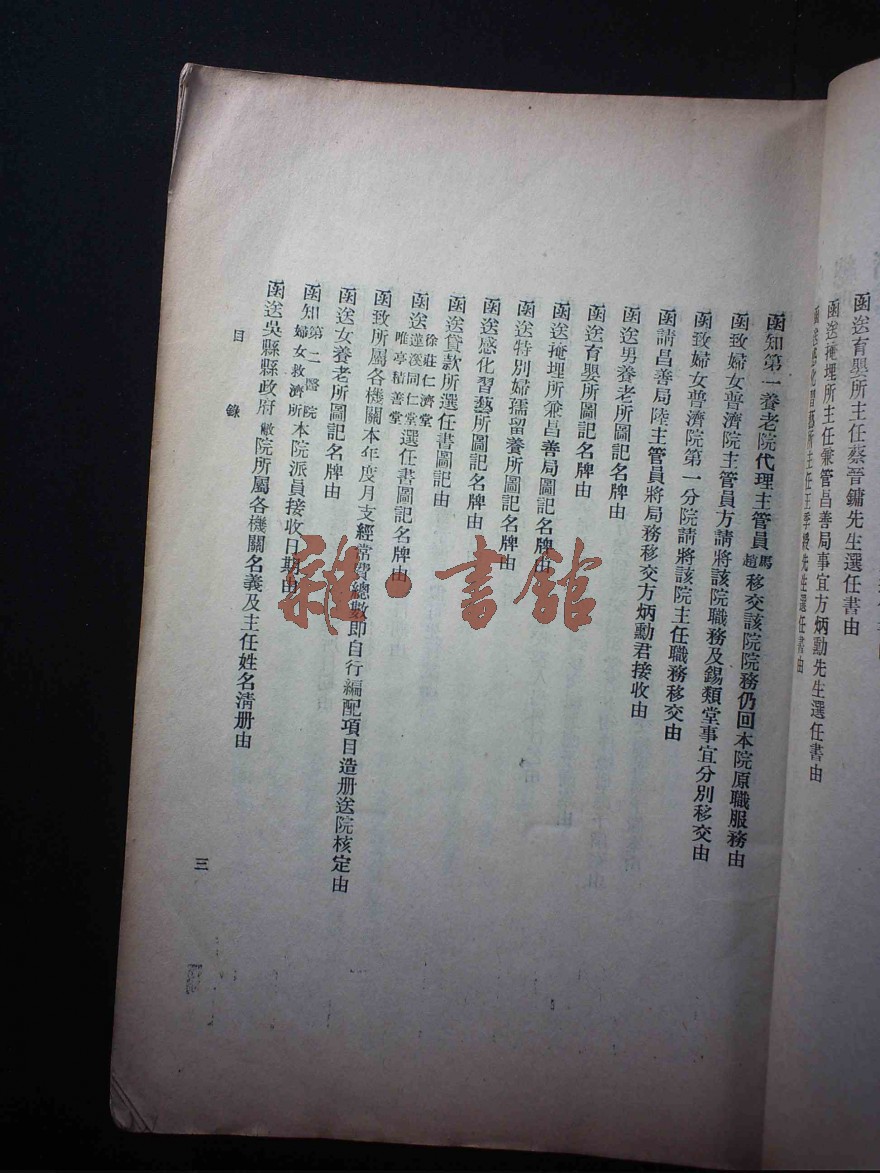 函送育嬰所主任蔡晉鏞先生選任書由
函送掩埋所主任兼管昌善局事宜方炳勳先生選任書由
函送感化習藝所主任王季緩先生選任書由
函知第一養老院代理主管員馬趙移交該院院務仍回本院原職服務由
函致婦女普濟院主管員方請將該院職務及錫類堂事宜分別移交由
函致婦女普濟院第一分院請將該院主任職務移交由
函請昌善局陸主管員將局務移交方炳勳君接收由
函送男養老所圖記名牌由
函送育嬰所圖記名牌由
函送掩埋所兼昌善局圖記名牌由
函送特別婦孺留養所圖記名牌由
函送感化習藝所圖記名牌由
函送貸款所選任書圖記由
函送徐莊仁濟堂蓮溪同仁堂唯亭積善堂選任書圖記名牌由
函致所屬各機關本年度月支經常費總數即自行編配項目造册送院核定由
函送女養老所圖記名牌由
函知第二醫院婦女救濟所本院派員接收日期由
函送吳縣縣政府敝院所屬各機關名義及主任姓名清册由
目錄
三
雜·書館